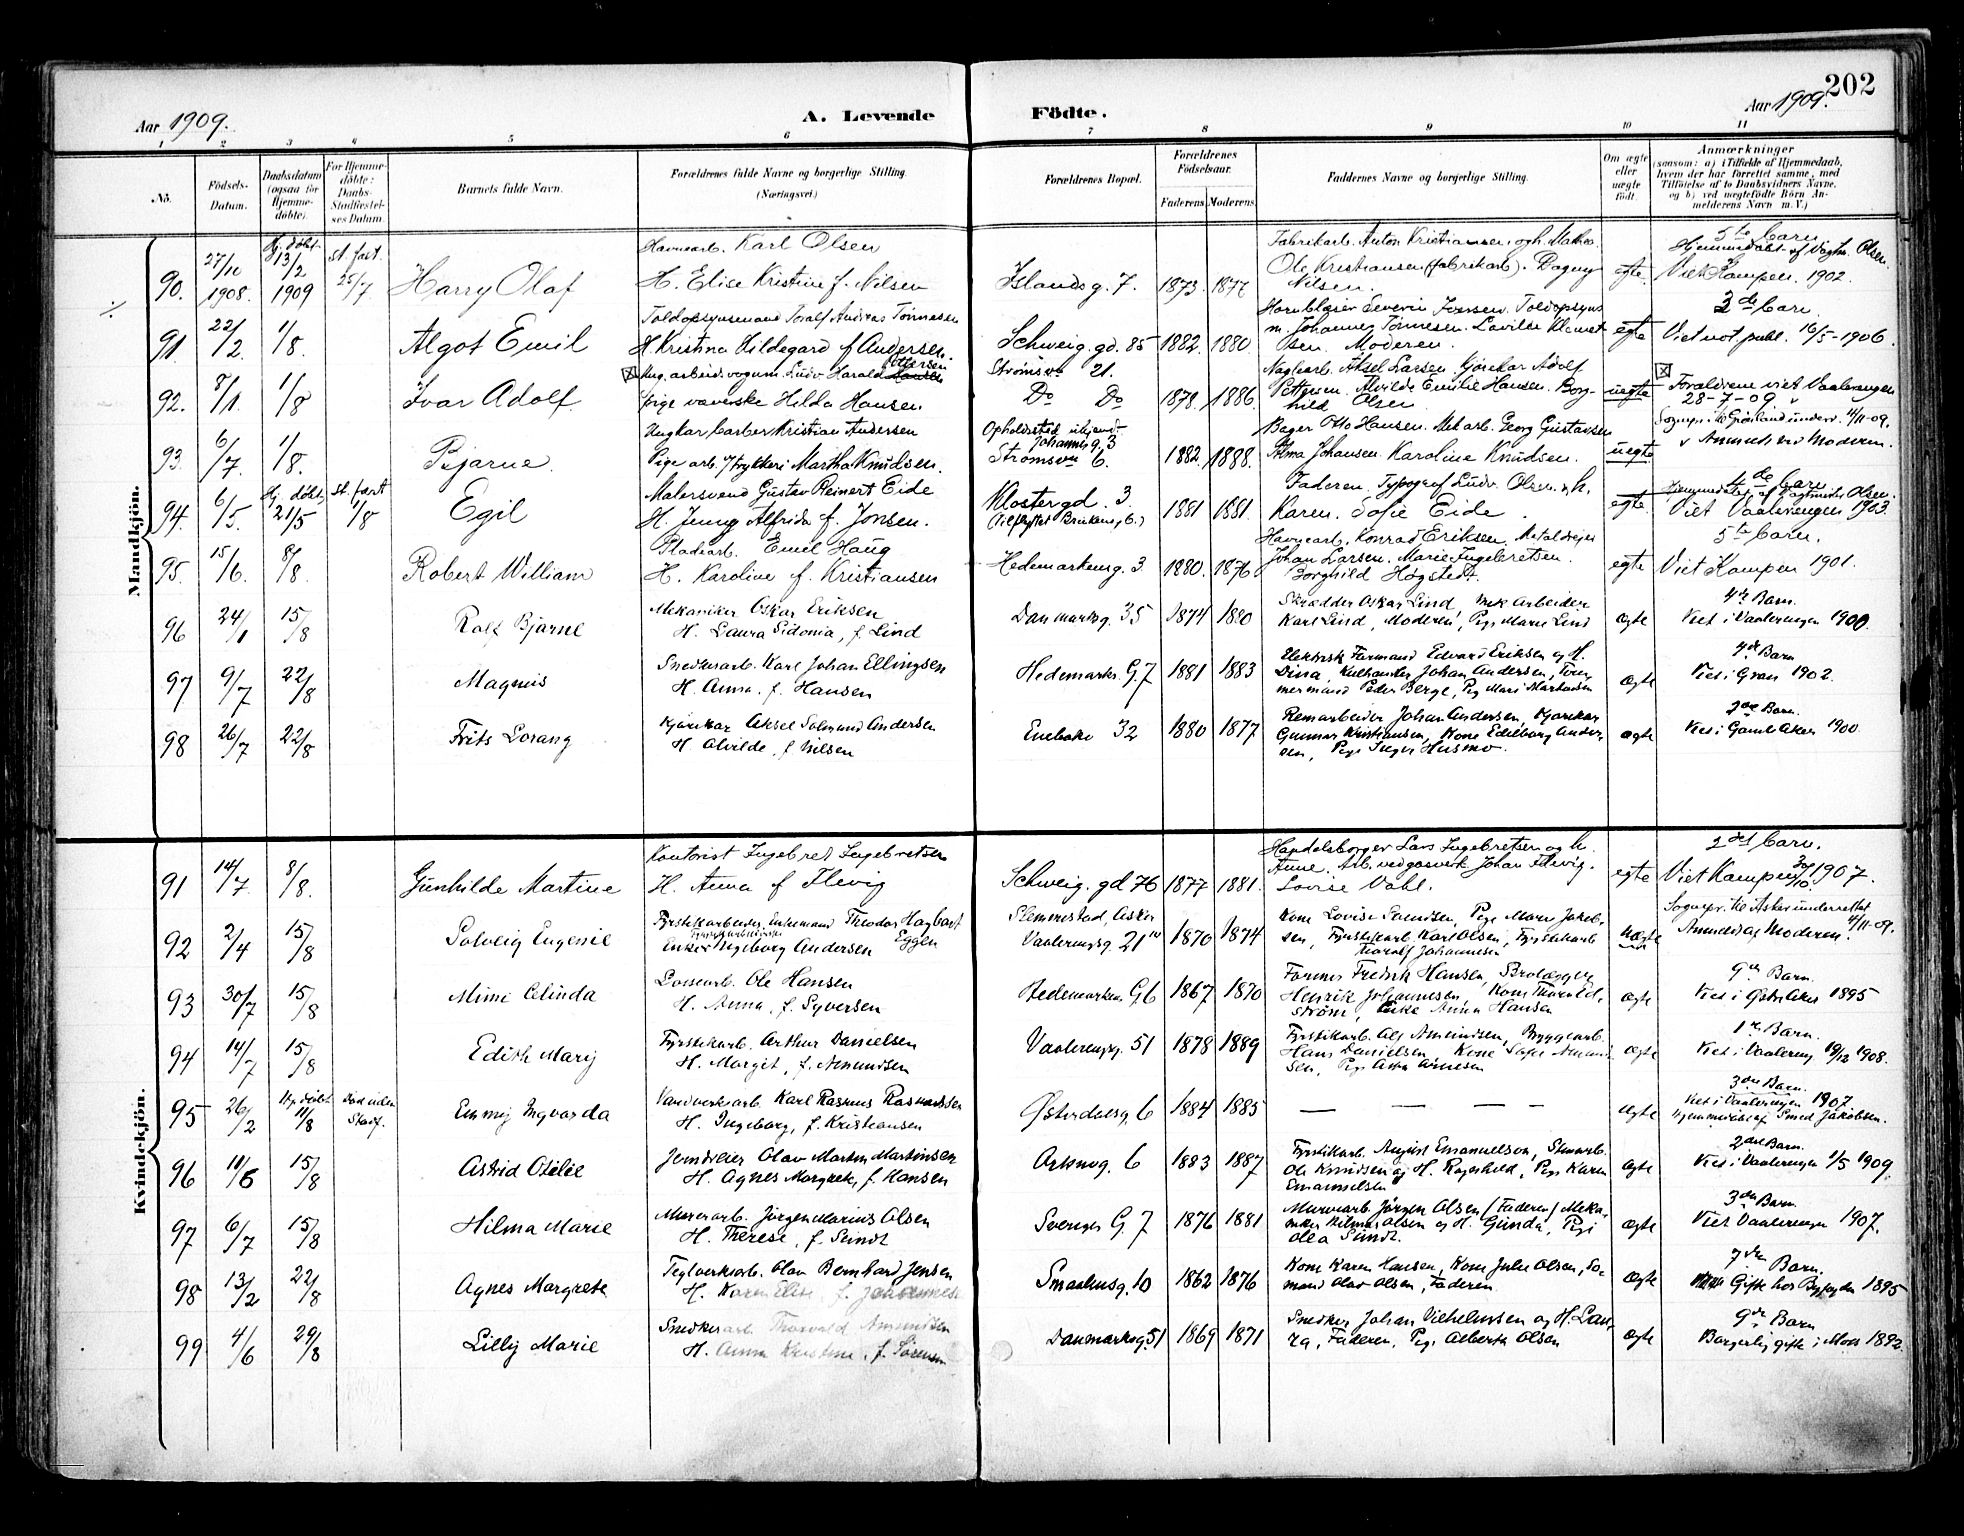 202
Aar 1909.
A. Levende
Födte.
Aar 1909.
1 2 3 4 5 6 7 8 9 10 11
No.
Födsels-Datum.
Daabsdatum (ogsaa for Hjemme-döbte).
For Hjemme-döbte: Daabs-Stadfæstel-ses Datum.
Barnets fulde Navn.
Forældrenes fulde Navne og borgerlige Stilling. (Næringsvei)
Forældrenes Bopæl.
Forældrenes Födselsaar.
Faderens. Moderens.
Faddernes Navne og borgerlige Stilling.
Om ægte eller uægte födt.
Anmærkninger
(saasom: a) i Tilfælde af Hjemmedaab, hvem der har forrettet samme, med Tilföielse af to Daabsvidners Navne, og b) ved uægtefödte Börn Anmelderens Navn m. V.)
Mandkjön.
Hj. döbt St. fæst. Havnearb. Karl Olsen Fabrikarb. Anton Kristiansen og h. Mathea. 5te barn
90. 27/10 1908. 13/2 1909 25/7 Harry Olaf H. Elise Kristine f. Nilsen Islandsg. 7. 1873. 1877 Ole Kristiansen (fabrikarb). Dagny Nilsen. egte Hjemmedöbt af Vagtm. Olsen. Viet Kampen 1902.
Toldopsynsmand Toralf Andreas Tönnesen Hornblæser Severin Iversen. Toldopsyns 3de barn.
91 22/2 1/8. Algot Emil H. Kristina Hildegard f Andersen. Schweig. gd. 85 1882. 1880. m. Johannes Tönnesen. Moderen. egte Viet not. publ. 16/5-1906.
Ung. arbeid. vognm. Ludv Harald Hansen Ottersen Strömsv. 21. Naglearb. Aksel Larsen. Gjörekar Adolf
92. 8/1. 1/8 Ivar Adolf pige væverske Hilda Hansen Do Do 1878. 1886. Pettersen. Alvilde Emilie Hansen. Borghild Olsen uegte Foraldrene viet Vaalerengen 28-7-09
Ungkar Kristian Andersen Opholdssted ukjendt Johannesg. 3 Bager Otto Hansen. Met. arb. Georg Gustavsen Sognepr. i Grönland underr. 4/11-09.
93. 6/7. 1/8. Bjarne Pige arb. i trykkeri Martha Knudsen. Strömsvn 6. 1882. 1888. Alma Johansen. Karoline Knudsen. uegte Anmeldt ved Moderen.
Malersvend Gustav Reinert Eide Faderen, Typograf Ludv. Olsen. 4de barn
94. 6/5. Hj. döbt 21/5 St. fæst 1/8 Egil H. Jenny Alfrida f. Jonsen. Klostergd. 3. 1881 1881. Karen. Sofie Eide. egte. Hjemmedöbt af Vagtmester Olsen. Viet Vaalerengen 1903.
Pladearb. Emil Haug Havnearb. Konrad Eriksen. Metaldreier 5te barn.
95. 15/6. 8/8. Robert William H. Karoline f. Kristiansen Hedemarkeng. 3 1880. 1876 Johan Larsen. Marie Ingebretsen. Borghild Högstedt. egte Viet Kampen 1901.
96 24/1 15/8 Rolf Bjarne Mekaniker Oskar Eriksen H. Laura Sidonia, f. Lind Danmarksg. 35 1874 1880 Skrædder Oskar Lind, Mek Arbeider Karl Lind, Moderen, Pige Marie Lind ægte 4de Barn. Viet i Vaalerengen 1900.
97 9/7 22/8 Magnus Snedkerarb. Karl Johan Ellingsen H. Anna. f. Hansen Hedemarks. G. 7 1881 1883 Elektrisk Formand Edvard Eriksen og H. Dina, Kulhandler Johan Andersen, Tömmermand Peder Berge, Pige Mari Martinsen ægte 4de Barn Viet i Gran 1902.
98 26/7 22/8 Frits Lorang Kjörekar Aksel Salmund Andersen H. Alvilde, f. Nilsen Enebakv 32 1880 1877 Remarbeider Johan Andersen, Kjörekar Gunnar Kristiansen, Kone Edelborg Andersen, Pige Inger Husmo. ægte 2de Barn. Viet i Gamle Aker 1900.
Kvindekjön.
91 14/7. 8/8. Gunhilde Martine Kontorist Ingebret Ingebretsen H. Anna f Flevig Schweig. gd 76 1877 1881. Handelsborger Lars Ingebretsen og h. Anne. Arb. ved gasverk Johan Flevig. Lovise Dahl. egte 2det barn. Viet Kampen 1907.
92 2/4 15/8 Solveig Eugenie Fyrstikarbeider, Enkemand Theodor Hagbart Eggen Enke Ingeborg Andersen Slemmestad, Asker Vaalerengsg. 21 1870 1874 Kone Lovise Paulsen, Pige Marie Jakobsen, Fyrstikarb. Karl Olsen, Fyrstikarb Thoralf Johannesen uægte Sognepr. til Asker underrettet 4/11-09. Anmeldt af Moderen.
93 30/7 15/8 Mimi Alinda Losearb. Ole Hansen H. Anna, f. Syversen Hedemarken. G. 6 1867 1870 Former Fredrik Hansen, Brolægger Henrik Johannesen, Kone Thora Lidström, Enke Anna Hansen ægte 9de Barn Viet i Östre Aker 1895
94 14/7 15/8 Edith Mary Fyrstikarb. Arthur Danielsen H. Margit, f. Amundsen Vaalerengsg. 51 1878 1889 Fyrstikarb. Alf Amundsen, Bryggearb. Hans Danielsen, Kone Sofie Amundsen, Pige Asta Arnesen ægte 1ste Barn. Viet i Vaalereng 19/12 1908.
95 26/2 Hj. döbt 11/8 Död uden Stadf. Emmy Ingvarda Vandverksarb. Karl Rasmus Rasmussen H. Ingeborg, f. Kristiansen Österdalsg. 6 1884 1885 — — — — ægte 3die Barn. Viet i Vaalerengen 1907. Hjemmedöbt af Smed Jakobsen.
96 11/6 15/8 Astrid Otilie Jerndreier Olav Martin Martinsen H. Agnes Margrete, f. Hansen Arkensg. 6 1883 1887 Fyrstikarb. August Emanuelson, Stenarb. Ole Knudsen og H. Ragnhild, Pige Karen Emanuelsen ægte 2det Barn. Viet i Vaalerengen 1/5 1909.
97 6/7 15/8 Hilma Marie Murerarb. Jörgen Marius Olsen H. Therese, f. Sundt Sverges G. 7 1876 1881 Murerarb. Jörgen Olsen (Faderen) Mekaniker Hilmar Olsen og H. Gunda, Pige Olea Sundt. ægte 3die Barn. Viet Vaalerengen 1907.
98 13/2 22/8 Agnes Margrete Teglverksarb. Olav Bernhard Jensen H. Karen Elise, f. Johannesen Smaalensg. 10 1862 1876 Kone Karen Hansen, Kone Julie Olsen, Sömand Olav Olsen, Faderen. ægte 7de Barn. Gifte hos Byfogden 1895
99 4/6 29/8 Lilly Marie Snedkerarb Thorvald Amundsen H. Anna Kristine, f. Sörensen Danmarksg. 51 1869 1871 Snedker Johan Vilhelmsen og H. Laura, Faderen, Pige Alberta Olsen ægte 9de Barn Borgerlig gifte i Moss 1892.